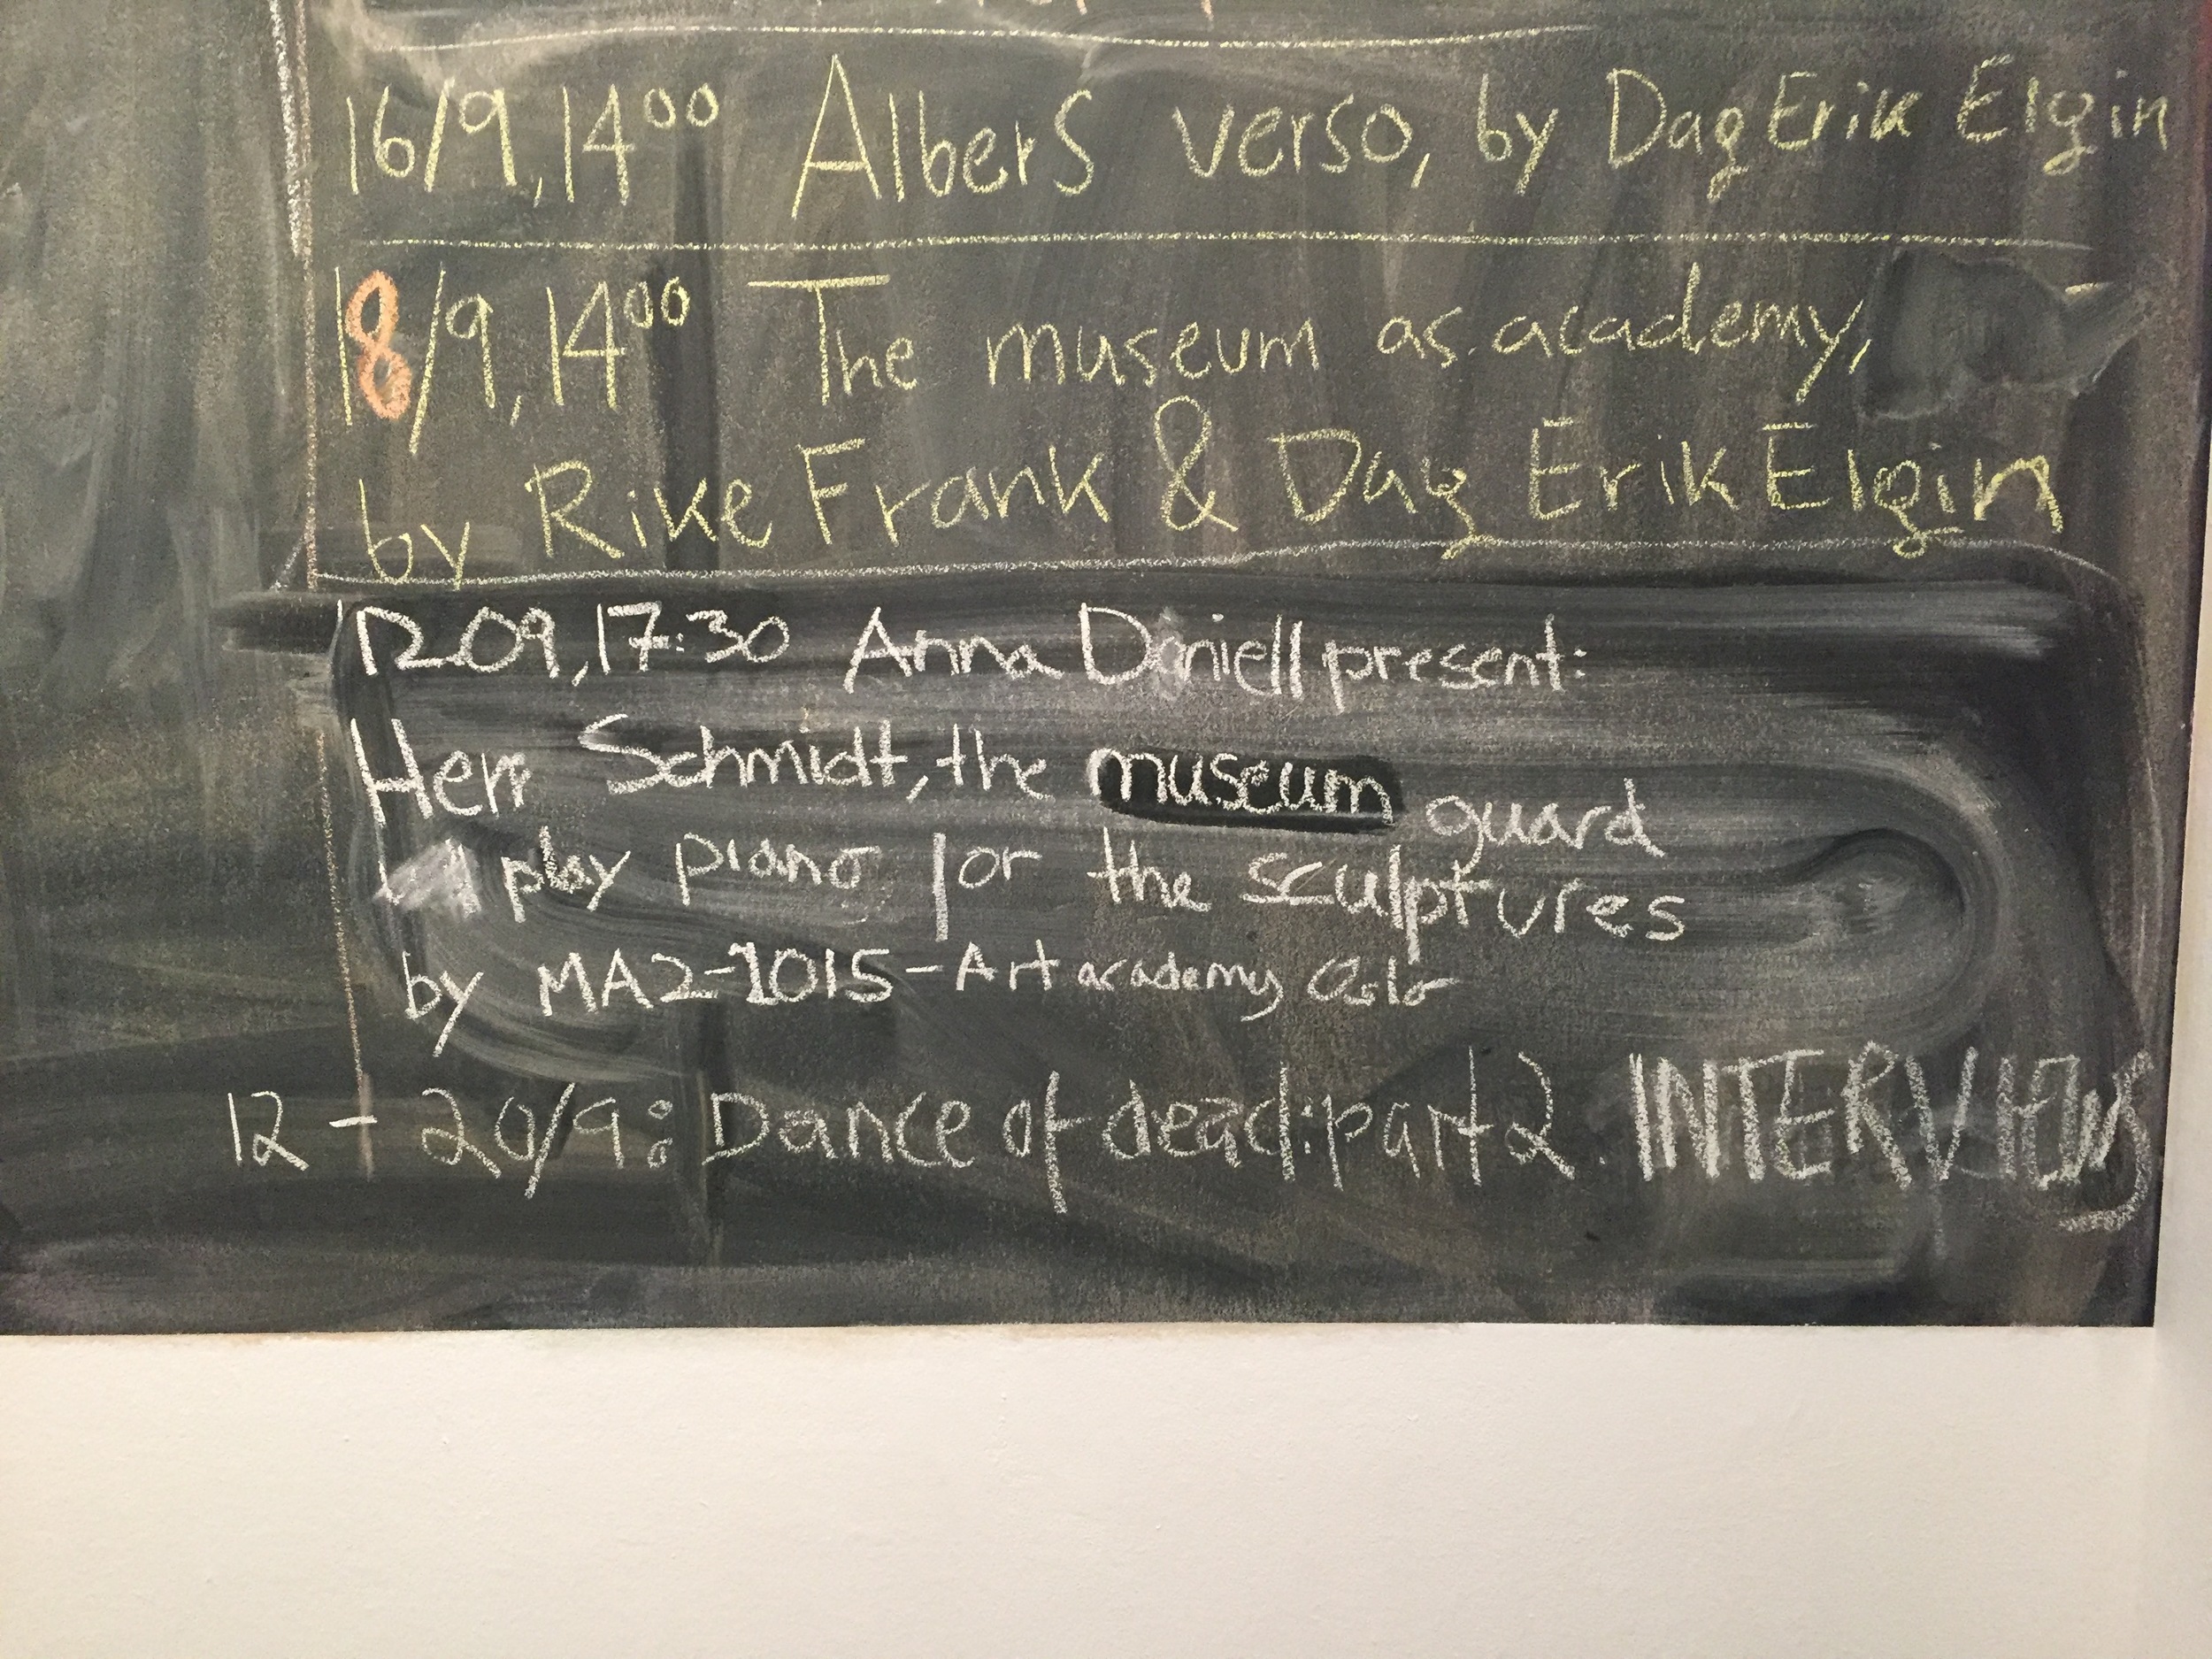 16/9, 14⁰⁰ Albers verso, by Dag Erik Elgin
18/9, 14⁰⁰ The museum as academy,
by Rike Frank & Dag Erik Elgin
12.09, 17:30 Anna Daniell present:
Herr Schmidt, the museum guard
play piano for the sculptures
by MA2-2015-Art academy Oslo
12-20/9: Dance of dead:part 2. INTERVIEWS